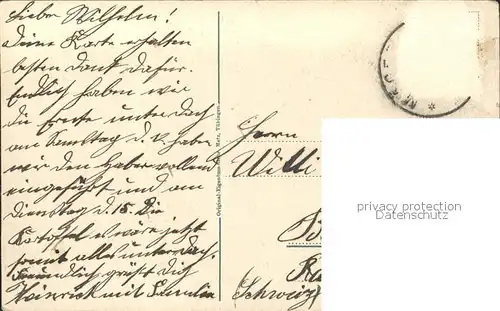 Lieber Wilhelm!
Deine Karte erhalten
besten Dank dafür.
Endlich haben wir
die Ernte unter Dach
am Samstag d. v. haben
wir den Haber vollends
eingeführt und am
Dienstag d. 15. Die
Kartoffel wäre jetzt
somit alles unter Dach.
Freundlich grüßt Dich
Heinrich mit Familie
Original-Eigentum Metz, Tübingen
Herrn
Willi
(Schweiz)
privacy protection
www.ansichtskarten-center.de